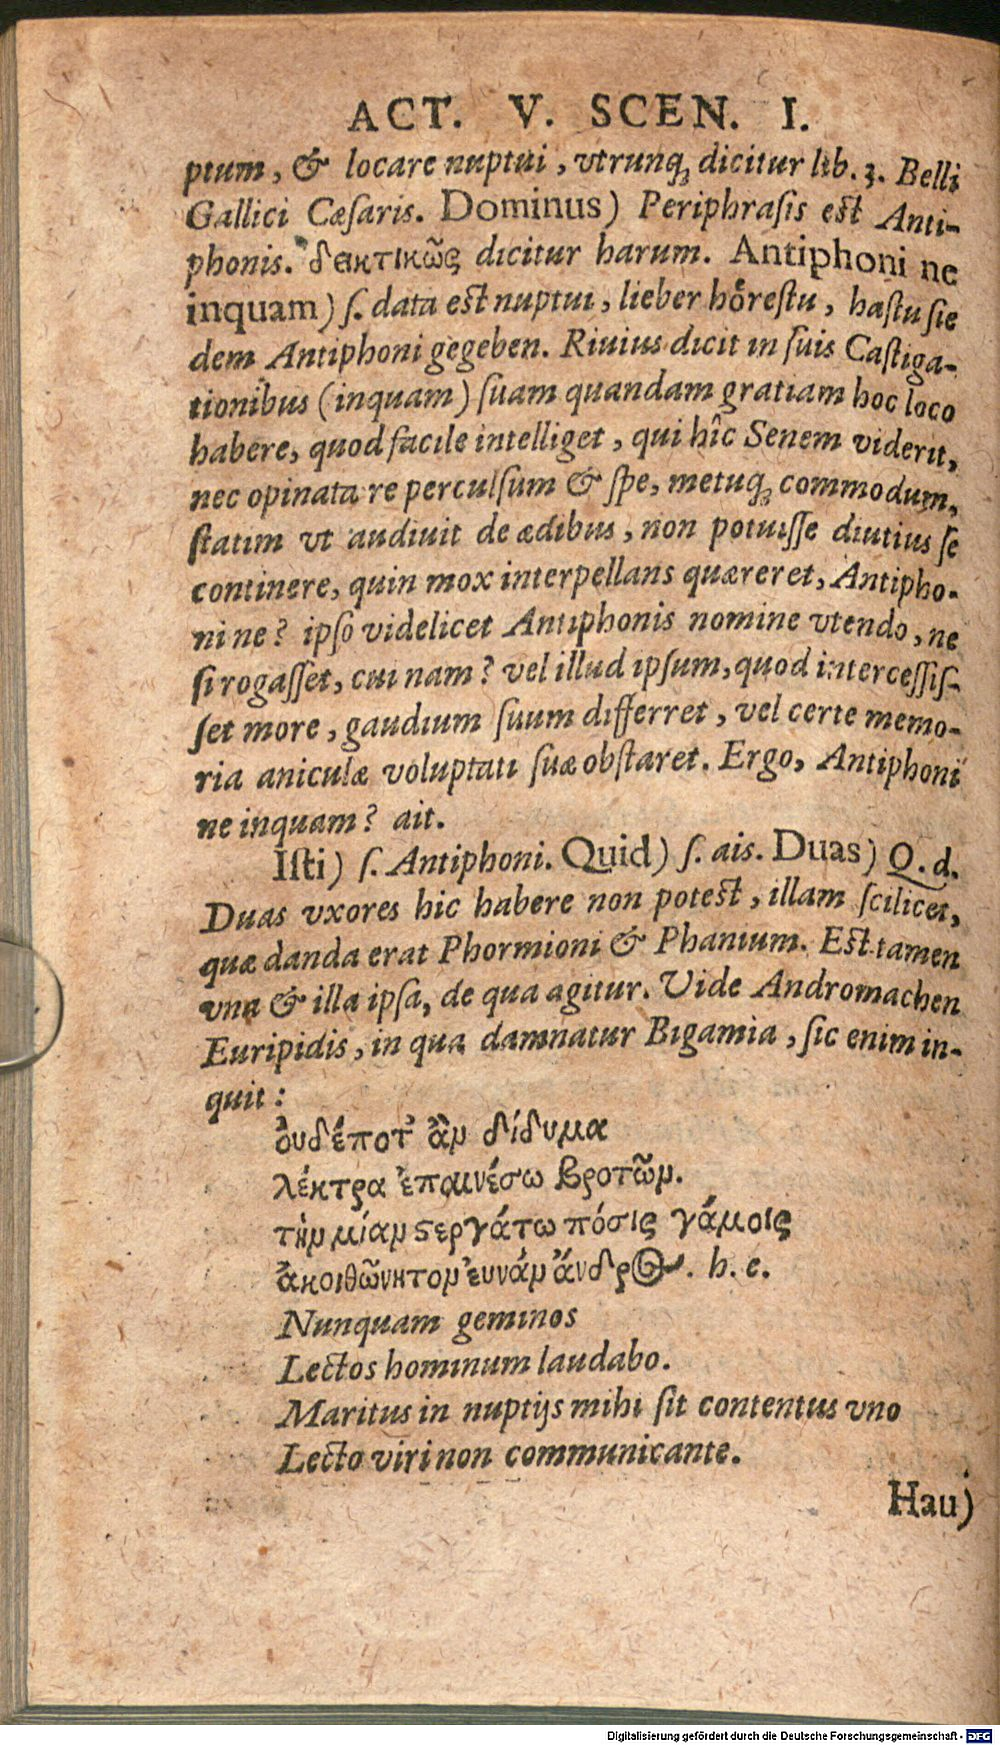 ACT. V. SCEN. I.
ptum, & locare nuptui, vtrunq; dicitur lib. 3. Belli
Gallici Cæſaris. Dominus) Periphraſis est Anti-
phonis. δεικτικῶς dicitur harum. Antiphoni ne
inquam) ſ. data est nuptui, lieber hoͤreſtu, haſtu ſie
dem Antiphoni gegeben. Riuius dicit in ſuis Caſtiga-
tionibus (inquam) ſuam quandam gratiam hoc loco
habere, quod facile intelliget, qui hîc Senem viderit,
nec opinata re perculſum & ſpe, metuq; commodum,
ſtatim vt audiuit de ædibus, non potuiſſe diutius ſe
continere, quin mox interpellans quæreret, Antipho-
ni ne? ipſo videlicet Antiphonis nomine vtendo, ne
ſi rogaſſet, cui nam? vel illud ipſum, quod interceſſiſ-
ſet more, gaudium ſuum differret, vel certe memo-
ria aniculæ voluptati ſuæ obſtaret. Ergo, Antiphoni
ne inquam? ait.
Iſti) ſ. Antiphoni. Quid) ſ. ais. Duas) Q. d.
Duas vxores hic habere non potest, illam ſcilicet,
quæ danda erat Phormioni & Phanium. Est tamen
vna & illa ipſa, de qua agitur. Vide Andromachen
Euripidis, in qua damnatur Bigamia, ſic enim in-
quit:
ὀυδέποτ' ἂν δίδυμα
λέκτρα ἐπαινέσω βροτῶν.
τὴν μίαν ϛεργάτω πόσις γάμοις
ἀκοιθῶνητον ἐυνάν ἄνδρος. h. e.
Nunquam geminos
Lectos hominum laudabo.
Maritus in nuptijs mihi ſit contentus vno
Lecto viri non communicante.
Hau)
Digitalisierung gefördert durch die Deutsche Forschungsgemeinschaft - DFG